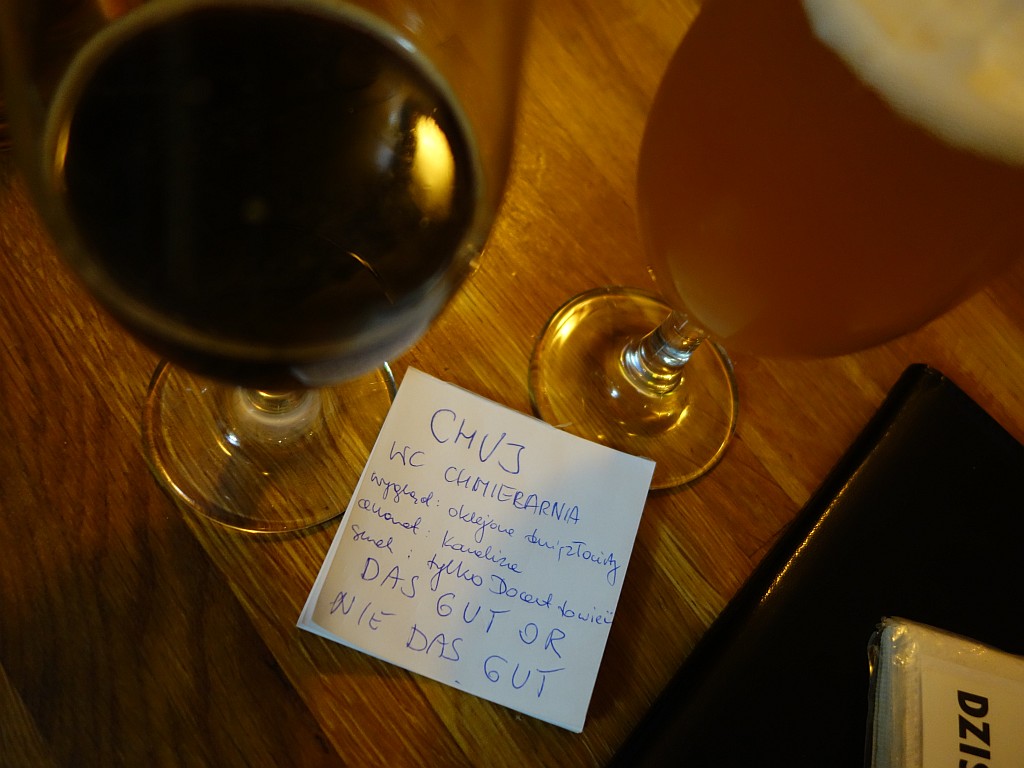 CHUJ
WC CHMIELARNIA
wygląd: oklejone
aromat: Kanaliza
smak: tylko Docent to wie
DAS GUT OR
NIE DAS GUT
DZIS